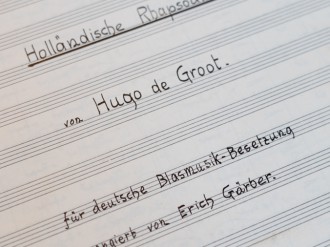 Holländische Rhapsod
von Hugo de Groot.
für deutsche Blasmusik-Besetzung
angiert von Erich Gårber.